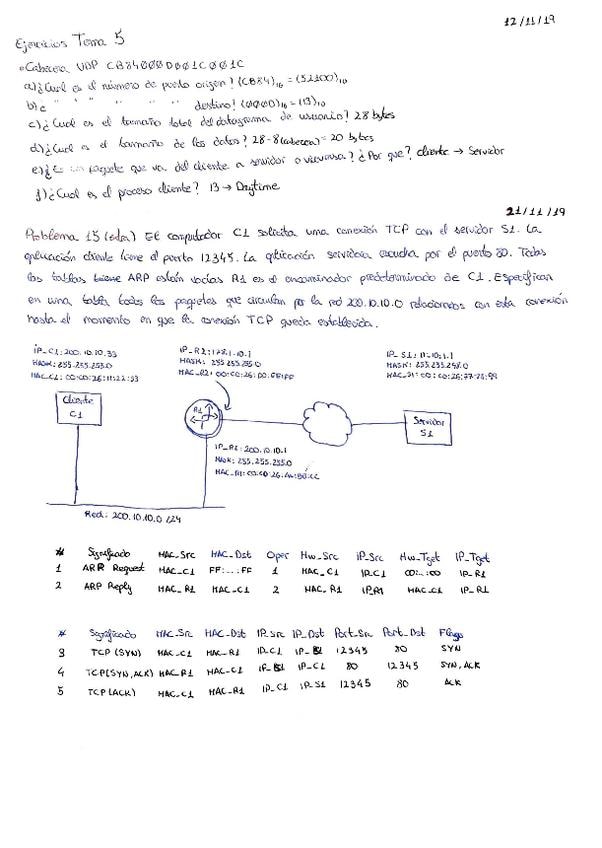 12/11/19
Ejercicios Tema 5
• Cabecera UDP CB84000D001C001C
a) ¿Cual es el número de puerto origen? (CB84)16 = (52100)10
b) ¿ " " " " " " destino? (000D)16 = (13)10
c) ¿Cual es el tamaño total del datagrama de usuario? 28 bytes
d) ¿Cual es el tamaño de los datos? 28-8(cabecera) = 20 bytes
e) ¿Es un paquete que va del cliente a servidor o viceversa? ¿Por que? cliente → Servidor
f) ¿Cual es el proceso cliente? 13 → Daytime
21/11/19
Problema 15 El computador C1 solicita una conexión TCP con el servidor S1. La
aplicación cliente tiene el puerto 12345. La aplicación servidora escucha por el puerto 80. Todas
las tablas ARP están vacías R1 es el encaminador predeterminado de C1. Especifican
en una tabla todos los paquetes que circulan por la red 200.10.10.0 relacionados con esta conexión
hasta el momento en que la conexión TCP queda establecida.
IP_C1: 200.10.10.33 IP_R2: IP_S1:
MASK: 255.255.255.0 MASK: 255.255.255.0 MASK: 255.255.255.0
MAC_C1: 00:C0:26:11:22:33 MAC_R2: MAC_S1: 00:C0:26:77:
Cliente
C1
R1
Servidor
S1
IP_R1: 200.10.10.1
MASK: 255.255.255.0
MAC_R1: 00:C0:26:AA:BB:CC
Red: 200.10.10.0/24
# Significado MAC_Src MAC_Dst Oper Hw_Src IP_Src Hw_Tget IP_Tget
1 ARP Request MAC_C1 FF:...:FF 1 MAC_C1 IP_C1 00:...:00 IP_R1
2 ARP Reply MAC_R1 MAC_C1 2 MAC_R1 IP_R1 MAC_C1 IP_R1
# Significado MAC_Src MAC_Dst IP_Src IP_Dst Port_Src Port_Dst Flags
3 TCP (SYN) MAC_C1 MAC_R1 IP_C1 IP_S1 12345 80 SYN
4 TCP (SYN, ACK) MAC_R1 MAC_C1 IP_S1 IP_C1 80 12345 SYN, ACK
5 TCP (ACK) MAC_C1 MAC_R1 IP_C1 IP_S1 12345 80 ACK